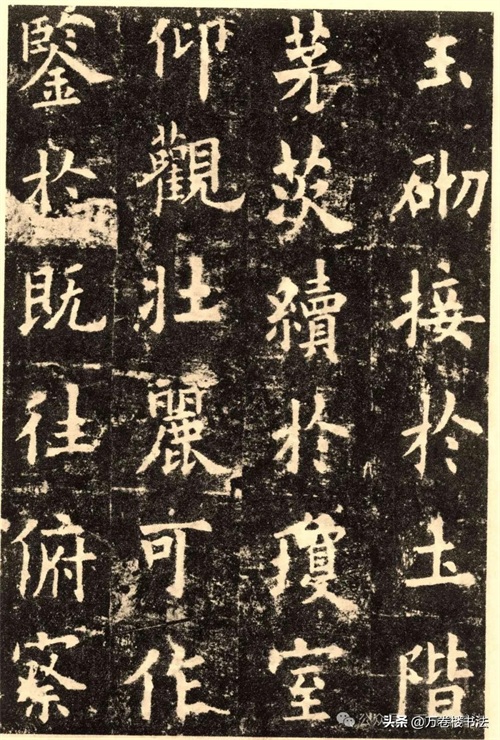 玉砌接於土階
茅茨續於瓊室
仰觀壯麗可作
鑒於既往俯察
头条 @万卷楼书法